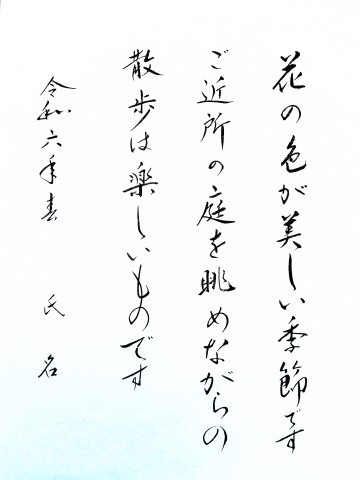 花の色が美しい季節です
ご近所の庭を眺めながらの
散歩は楽しいものです
令和六年春 氏名